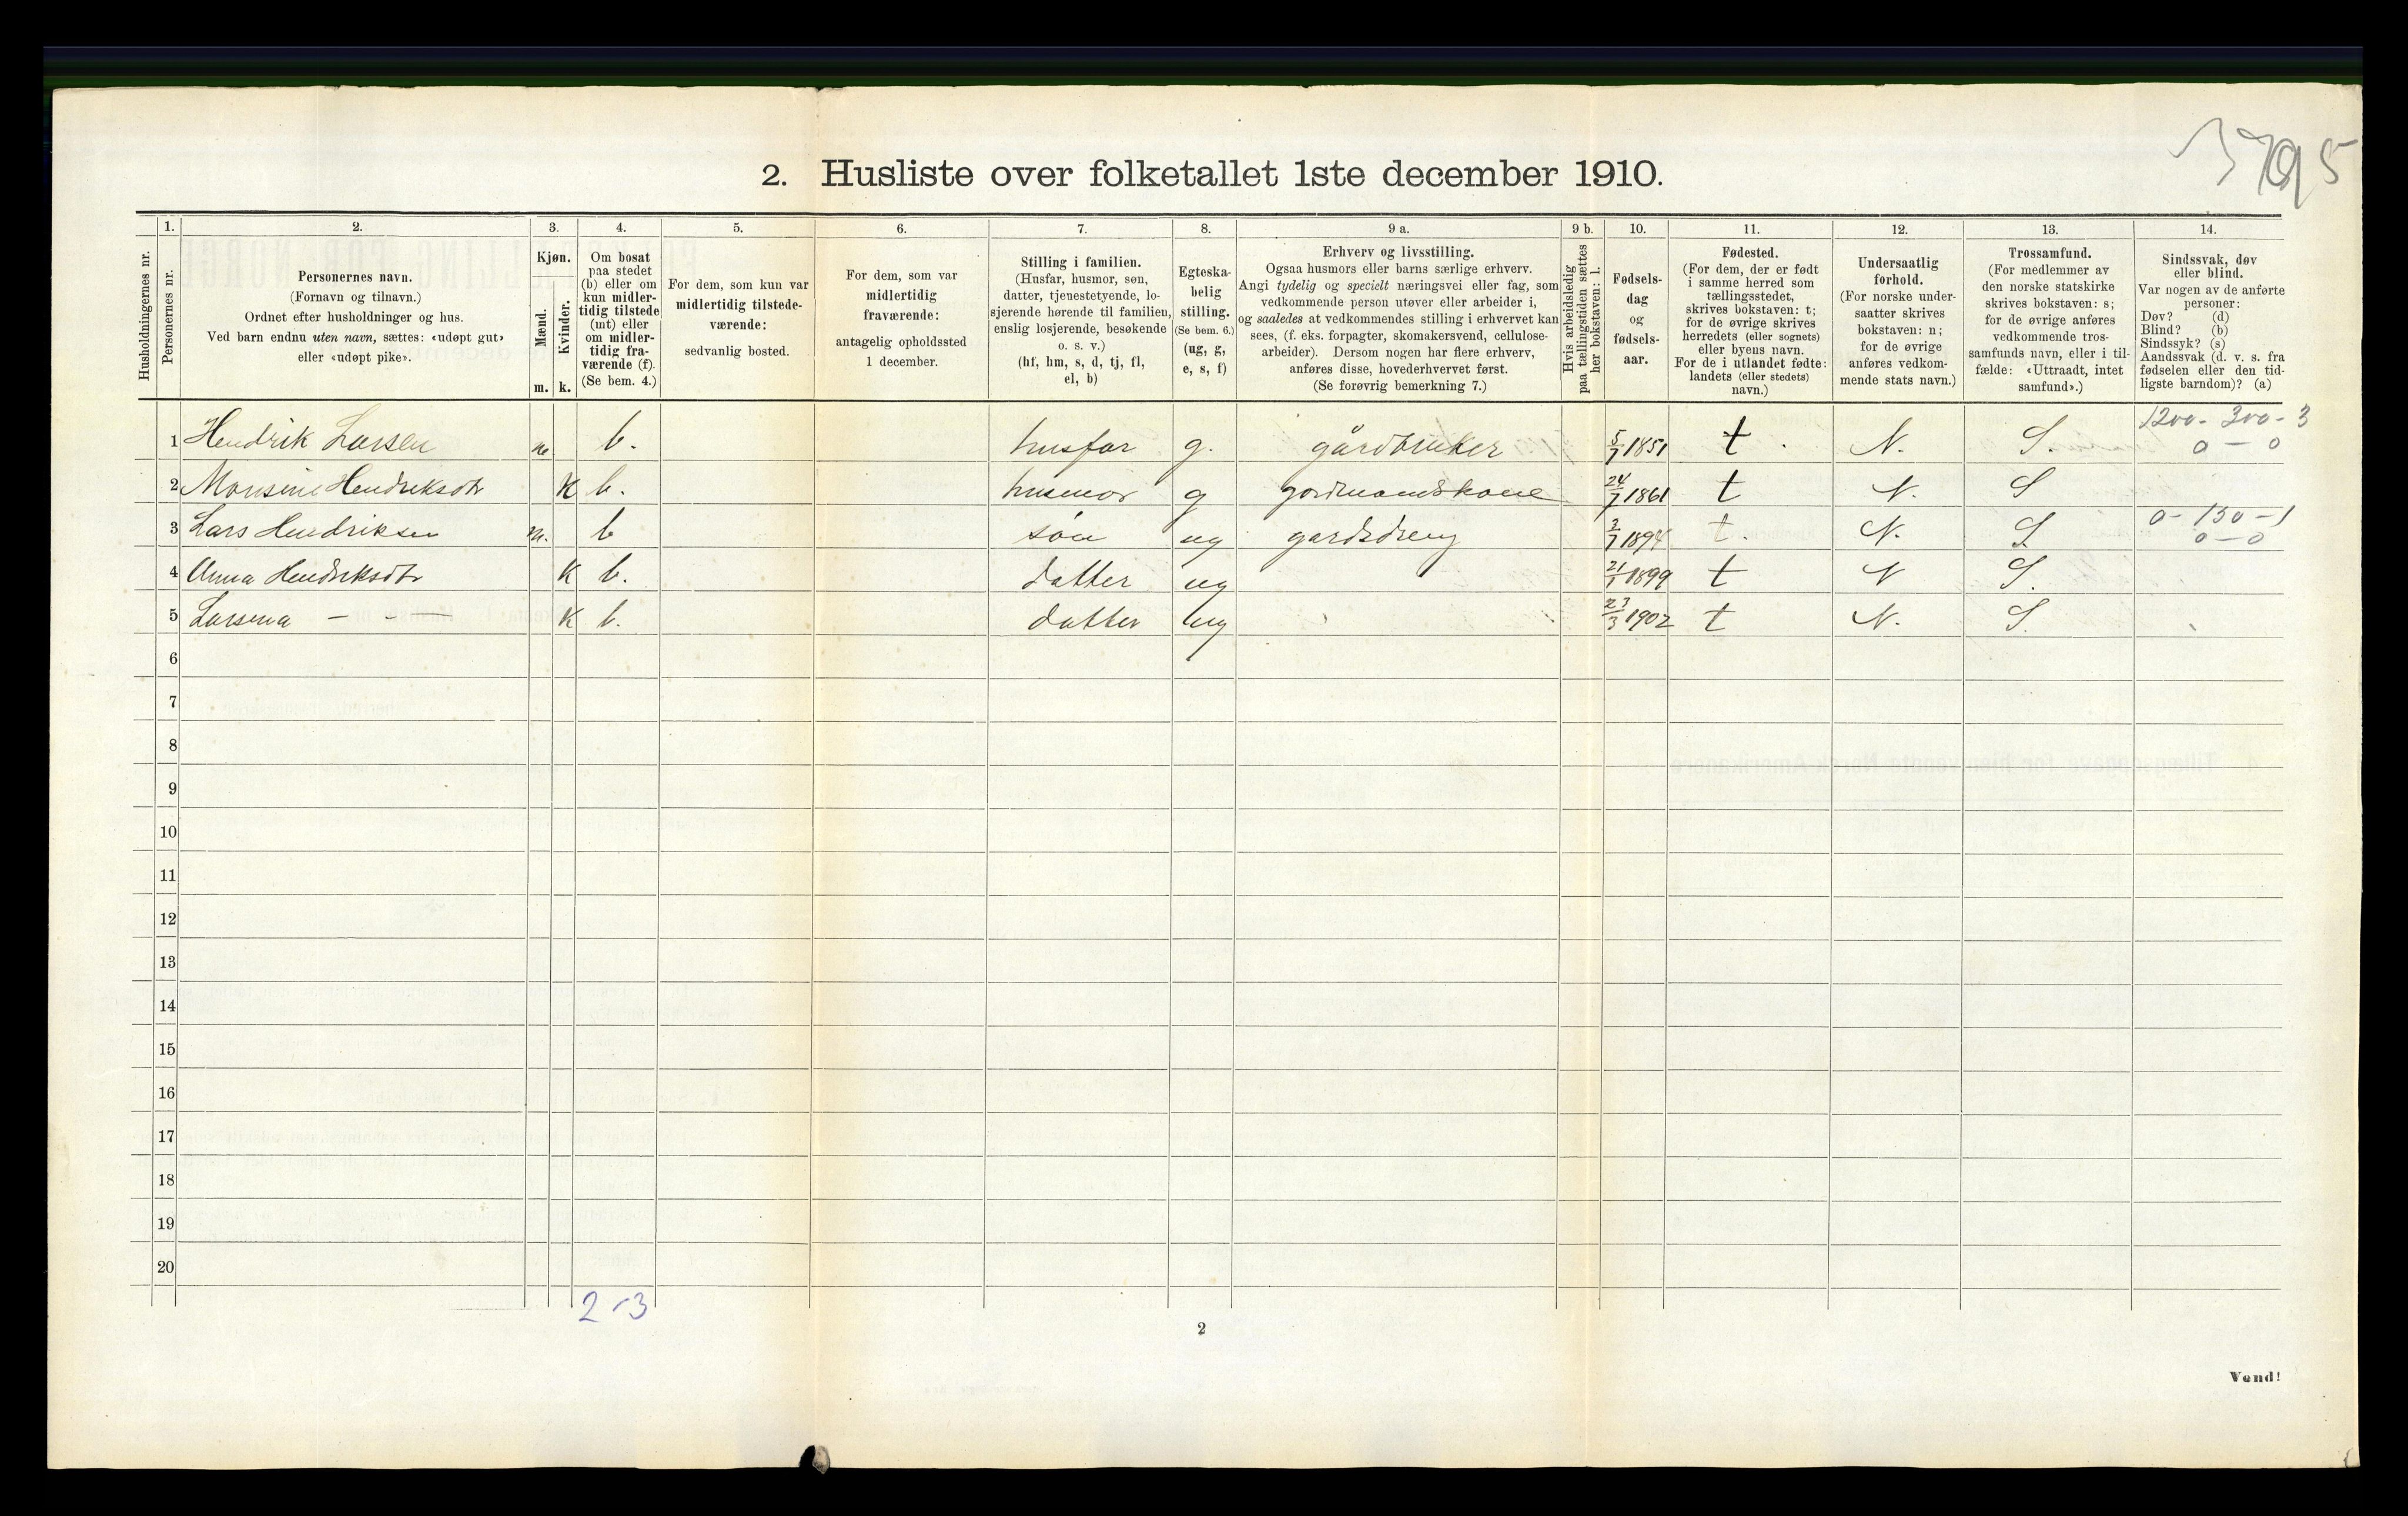 2. Husliste over folketallet 1ste december 1910.
Husholdningernes nr.
1.
Personernes nr.
2.
Personernes navn.
(Fornavn og tilnavn.)
Ordnet efter husholdninger og hus.
Ved barn endnu uten navn, sættes: «udøpt gut»
eller «udøpt pike».
3.
Kjøn.
Mænd.
Kvinder.
m. k.
4.
Om bosat
paa stedet
(b) eller om
kun midler-
tidig tilstede
(mt) eller
om midler-
tidig fra-
værende (f).
(Se bem. 4.)
5.
For dem, som kun var
midlertidig tilstede-
værende:
sedvanlig bosted.
6.
For dem, som var
midlertidig
fraværende:
antagelig opholdssted
1 december.
7.
Stilling i familien.
(Husfar, husmor, søn,
datter, tjenestetyende, lo-
sjerende hørende til familien,
enslig losjerende, besøkende
o. s. v.)
(hf, hm, s, d, tj, fl,
el, b)
8.
Egteska-
belig
stilling.
(Se bem. 6.)
(ug, g,
e, s, f)
9 a.
Erhverv og livsstilling.
Ogsaa husmors eller barns særlige erhverv.
Angi tydelig og specielt næringsvei eller fag, som
vedkommende person utøver eller arbeider i,
og saaledes at vedkommendes stilling i erhvervet kan
sees, (f. eks. forpagter, skomakersvend, cellulose-
arbeider). Dersom nogen har flere erhverv,
anføres disse, hovederhvervet først.
(Se forøvrig bemerkning 7.)
9 b.
Hvis arbeidsledig
paa tællingstiden sættes
her bokstaven: l.
10.
Fødsels-
dag
og
fødsels-
aar.
11.
Fødested.
(For dem, der er født
i samme herred som
tællingsstedet,
skrives bokstaven: t;
for de øvrige skrives
herredets (eller sognets)
eller byens navn.
For de i utlandet fødte:
landets (eller stedets)
navn.)
12.
Undersaatlig
forhold.
(For norske under-
saatter skrives
bokstaven: n;
for de øvrige
anføres vedkom-
mende stats navn.)
13.
Trossamfund.
(For medlemmer av
den norske statskirke
skrives bokstaven: s;
for de øvrige anføres
vedkommende tros-
samfunds navn, eller i til-
fælde: «Uttraadt, intet
samfund».)
14.
Sindssvak, døv
eller blind.
Var nogen av de anførte
personer:
Døv? (d)
Blind? (b)
Sindssyk? (s)
Aandssvak (d. v. s. fra
fødselen eller den tid-
ligste barndom)? (a)
1200 - 300 - 3
1 Hendrik Larsen m b. husfar g. gårdbruker 5/7 1851 t. N. S. 0 - 0
2 Monsine Hendriksdtr K b. husmor g gardmandskone 24/7 1861 t N. S
0 - 150 - 1
3 Lars Hendriksen m. b søn ug gardsdreng 3/7 1894 t. N. S 0 - 0
4 Anna Hendriksdtr K b. datter ug 21/1 1899 t N S.
5 Larsena — - — K b. datter ug 23/3 1902 t N. S.
6
7
8
9
10
11
12
13
14
15
16
17
18
19
20
2 - 3
2
Vend!